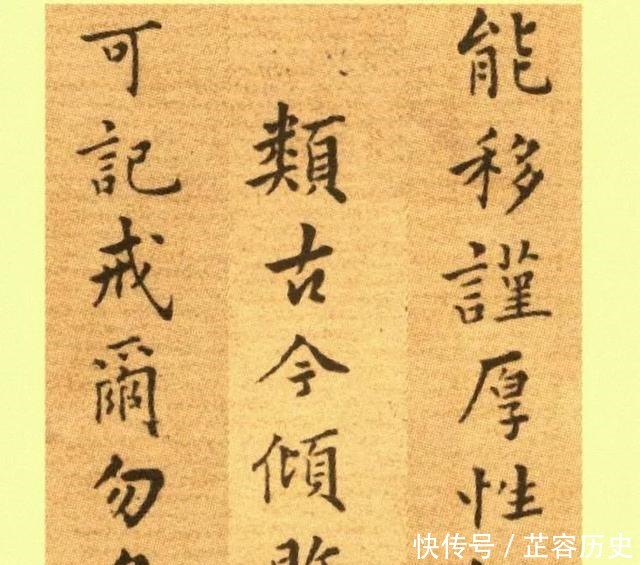 能移謹厚性
類古今傾敗
可記戒爾勿多
快传号 / 芷容历史